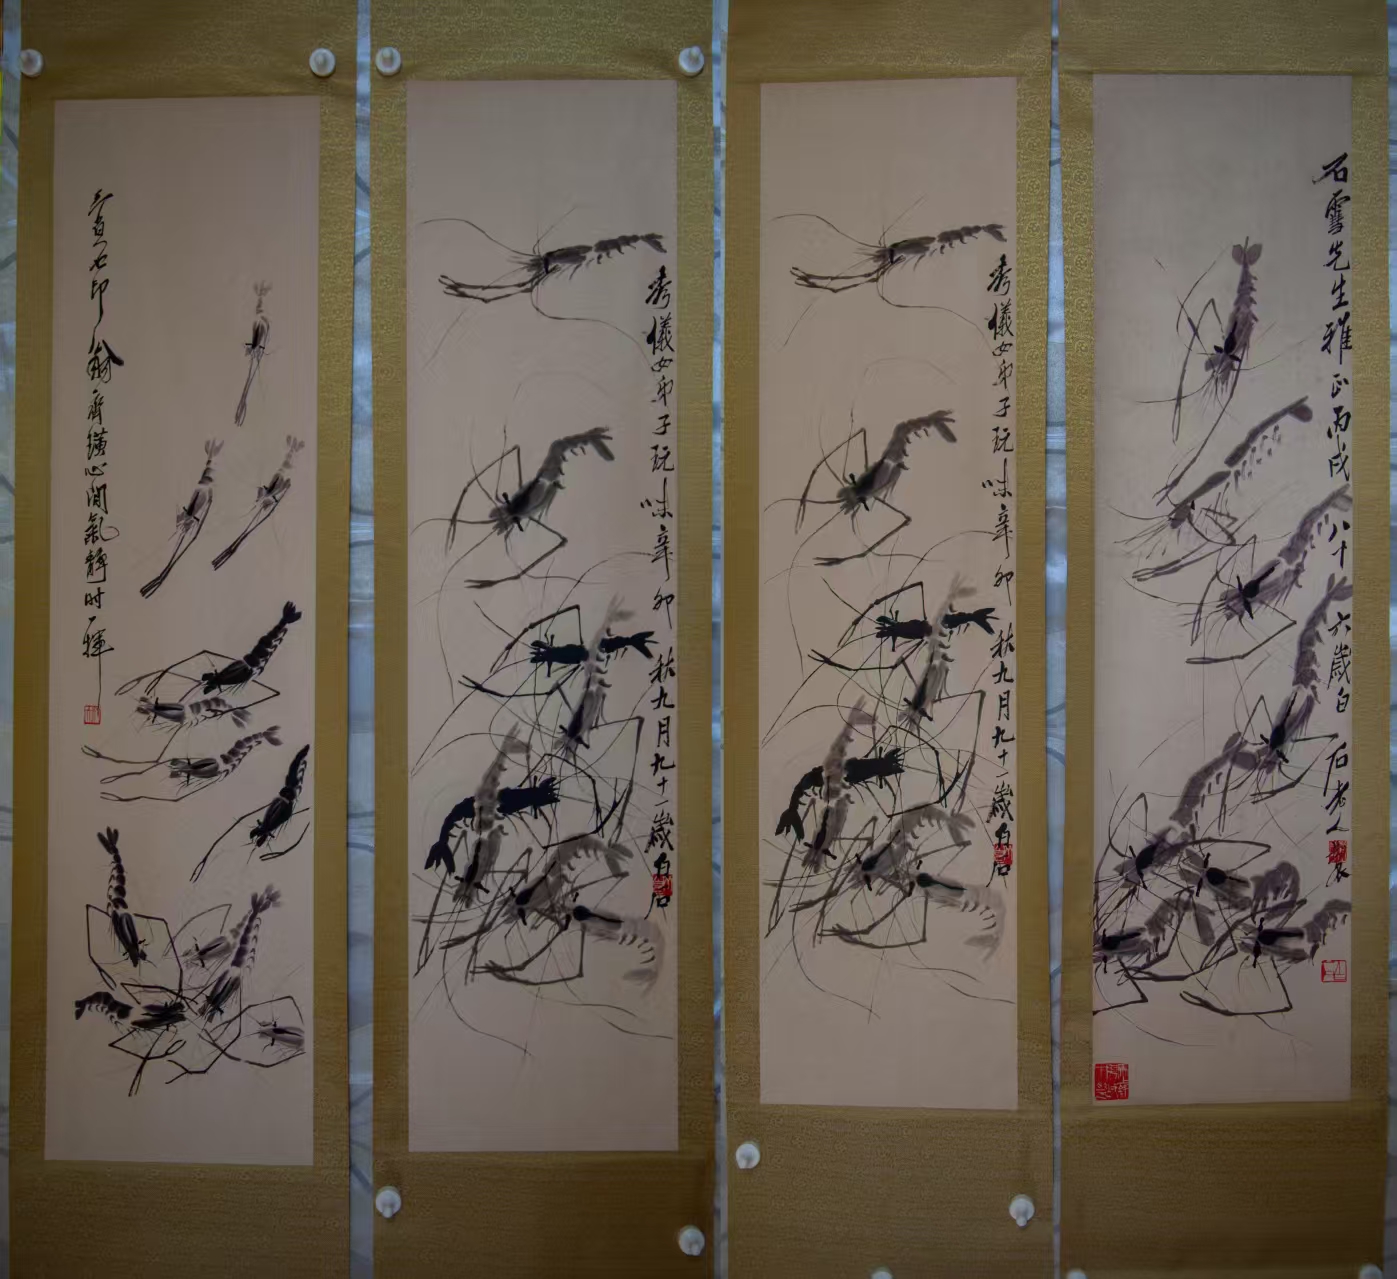 三百石印翁齊璜心閒氣靜时一揮
秀儀女弟子玩味辛卯秋九月九十一歲白石
秀儀女弟子玩味辛卯秋九月九十一歲白石
石雪先生雅正丙戌八十六歲白石老人